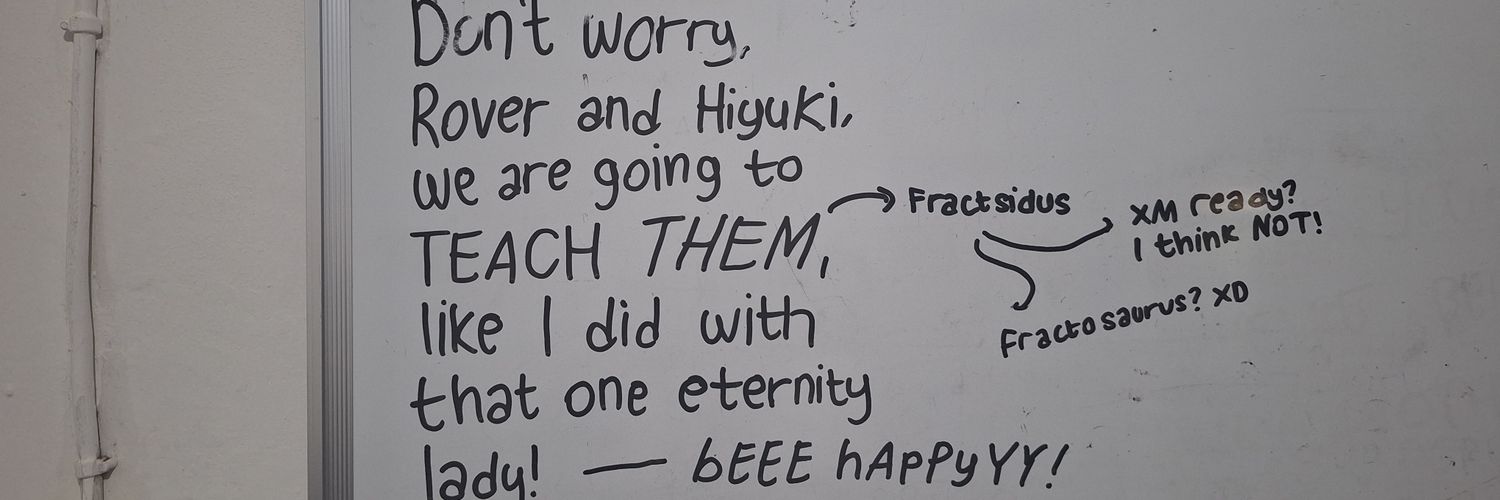 Don't worry,
Rover and Hiyuki,
we are going to
TEACH THEM,
like I did with
that one eternity
lady! — bEEE hAppyYY!
Fractsidus
XM ready?
I think NOT!
Fractosaurus? XD